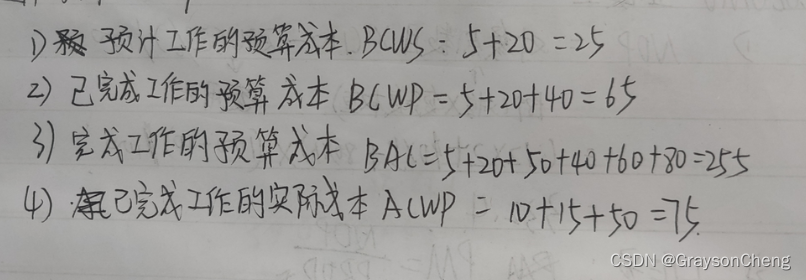 1) 预计工作的预算成本. BCWS: 5+20=25
2) 已完成工作的预算成本 BCWP=5+20+40=65
3) 完成工作的预算成本 BAC=5+20+50+40+60+80=255
4) 已完成工作的实际成本 ACWP = 10+15+50=75.
CSDN @GraysonCheng